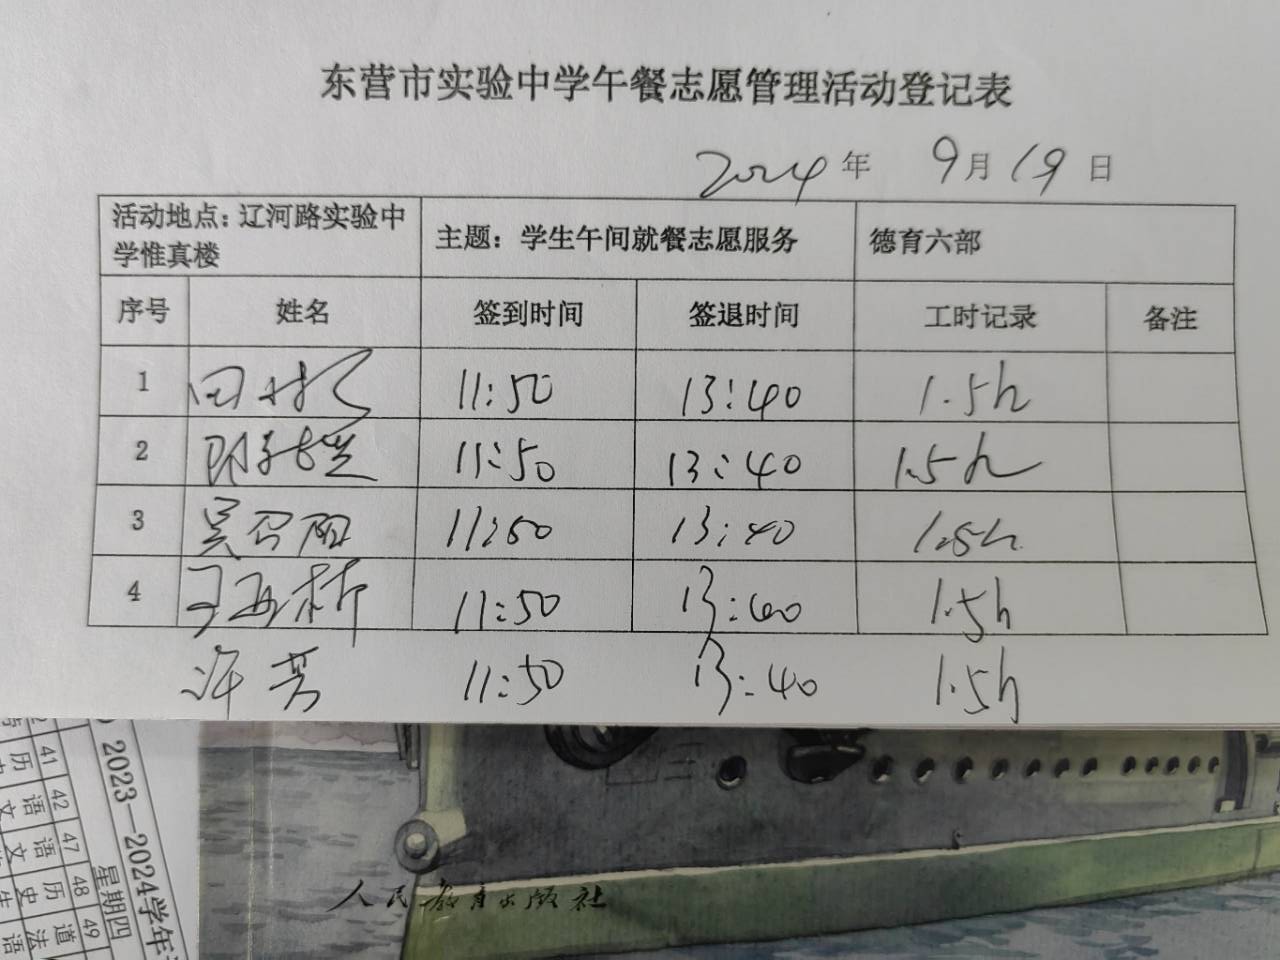 东营市实验中学午餐志愿管理活动登记表
2024年 9月19日
活动地点：辽河路实验中学惟真楼 主题：学生午间就餐志愿服务 德育六部
序号 姓名 签到时间 签退时间 工时记录 备注
1 田 11:50 13:40 1.5h
2 11:50 13:40 1.5h
3 吴召阳 11:50 13:40 1.5h
4 11:50 13:40 1.5h
许芳 11:50 13:40 1.5h
2023—2024学年
星期四
41 42 47 48 49
历 语文 语文 历史 道法
人民教育出版社